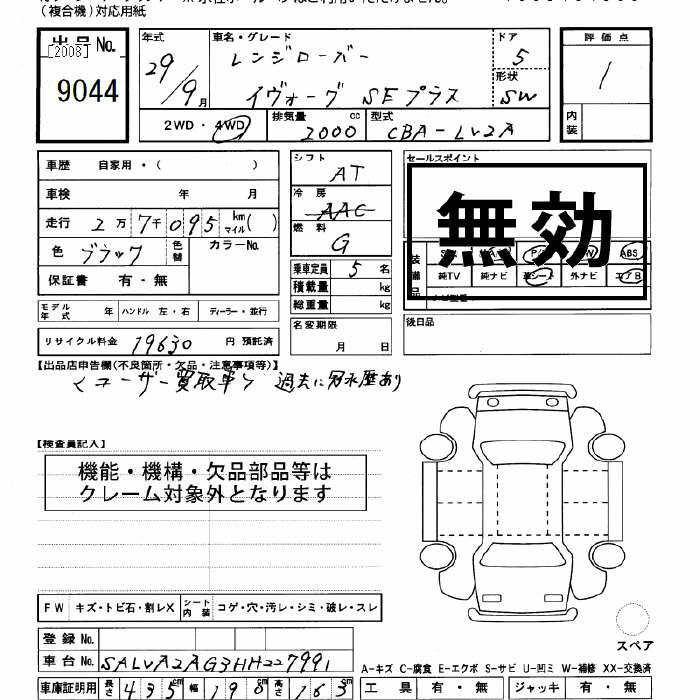 (複合機)対応用紙
出品No.
[2008]
9044
年式
29/9月
車名・グレード
レンジローバー
イヴォーグ SEプラス
ドア
5
形状
SW
評価点
1
内装
2WD・4WD
排気量 cc
2000
型式
CBA-LV2A
車歴 自家用・( )
車検 年 月
走行 2万7千095 km マイル( )
色 ブラック 色替 カラーNo.
保証書 有・無
シフト
AT
冷房
AAC
燃料
G
乗車定員 5名
積載量 kg
総重量 kg
セールスポイント
無効
装備品
ABS
純TV 純ナビ 革シート 外ナビ エアB
モデル年式 年 ハンドル 左・右 ディーラー・並行
名変期限
月 日
後日品
リサイクル料金 19630 円 預託済
【出品店申告欄(不良箇所・欠品・注意事項等)】
<ユーザー買取車> 過去に冠水歴あり
【検査員記入】
機能・機構・欠品部品等は
クレーム対象外となります
FW キズ・トビ石・割レX シート内装 コゲ・穴・汚レ・シミ・破レ・スレ
スペア
登録No.
車台No. SALVA2AG3HH227991
A-キズ C-腐食 E-エクボ S-サビ U-凹ミ W-補修 XX-交換済
車庫証明用 長さ 435cm 幅 190cm 高さ 163cm
工具 有・無 ジャッキ 有・無